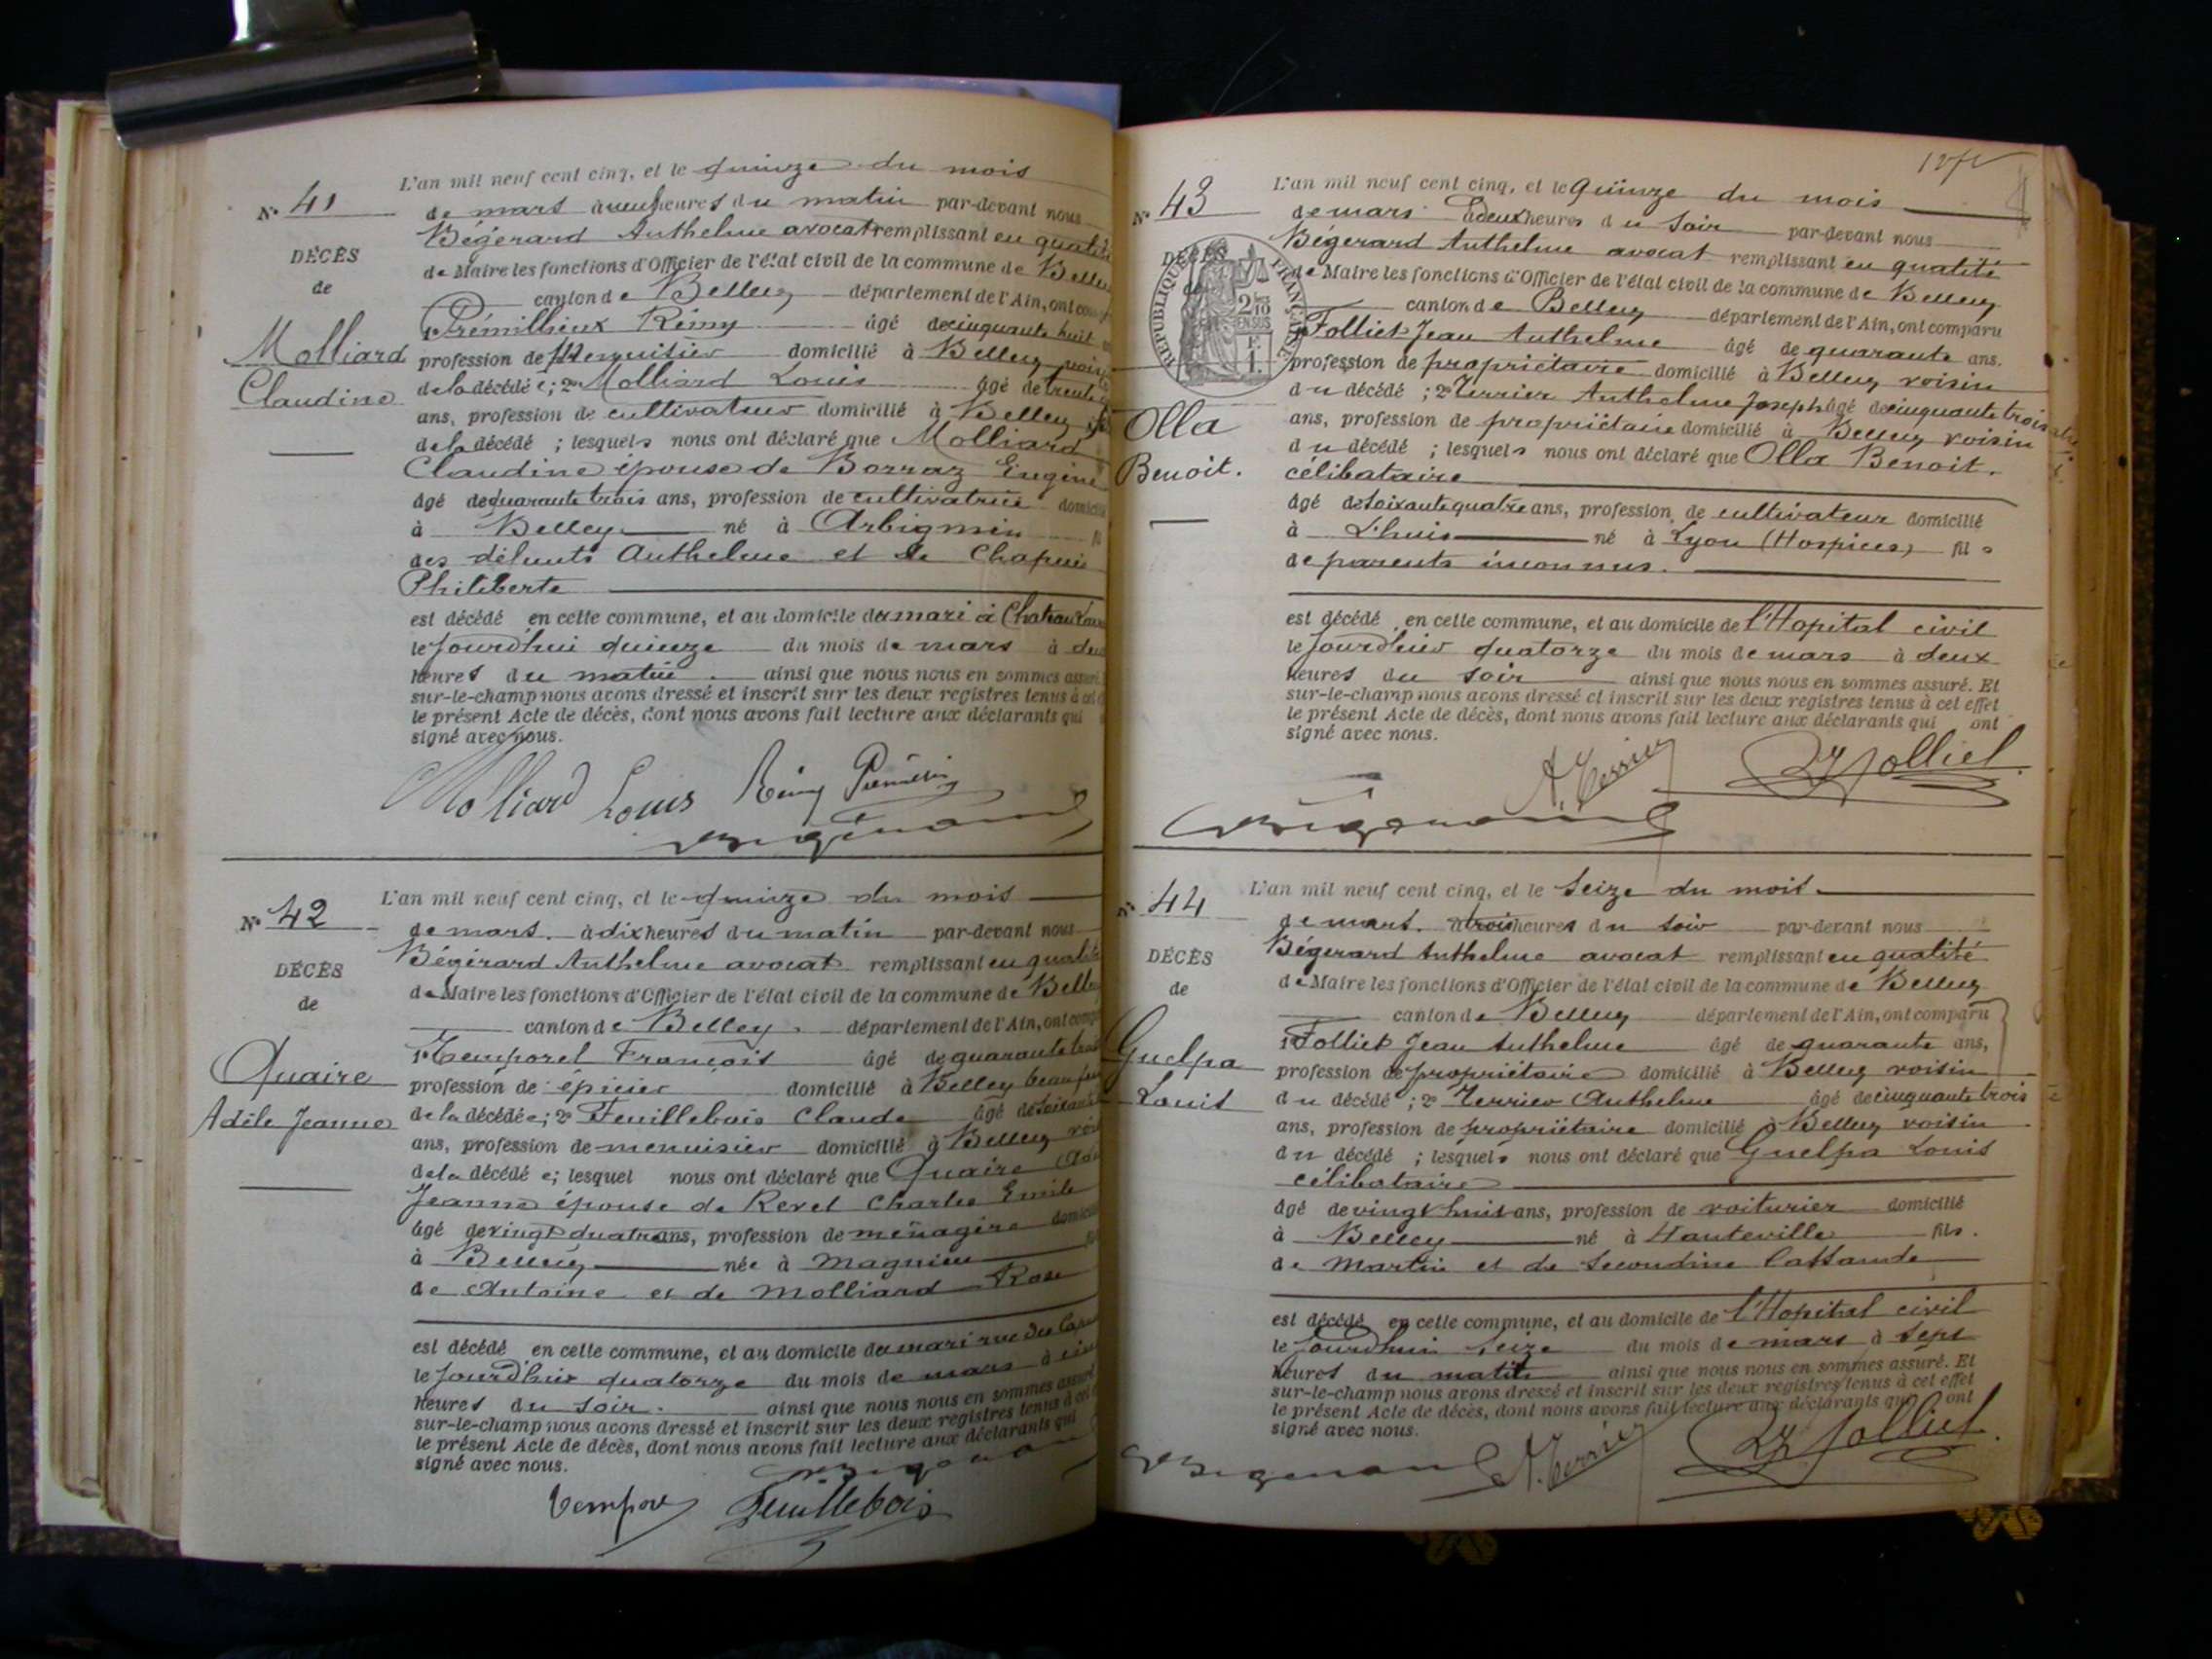 N° 41
DÉCÈS
de
Molliard
Claudine
L'an mil neuf cent cinq, et le quinze du mois
de mars à neuf heures du matin par-devant nous
Bégerard Anthelme avocat remplissant en qualité
de Maire les fonctions d'Officier de l'état civil de la commune de Belley
canton de Belley département de l'Ain, ont
1° Prémillieux Rémy âgé de cinquante huit
profession de Menuisier domicilié à Belley voisin
de la décédée; 2° Molliard Louis âgé de trente
ans, profession de cultivateur domicilié à Belley
de la décédé ; lesquels nous ont déclaré que Molliard
Claudine épouse de Borraz Eugène
âgé de quarante trois ans, profession de cultivatrice
à Belley né à Arbignin
des défunts Anthelme et de Chapuis
Philiberte
est décédé en cette commune, et au domicile du mari à Chateau
le jourd'hui quinze du mois de mars à
heures du matin. ainsi que nous nous en sommes assuré.
sur-le-champ nous avons dressé et inscrit sur les deux registres tenus à cet
le présent Acte de décès, dont nous avons fait lecture aux déclarants qui
signé avec nous.
Molliard Louis Rémy
N° 42
DÉCÈS
de
Quaire
Adèle Jeanne
L'an mil neuf cent cinq, et le quinze du mois
de mars. à dix heures du matin par-devant nous
Bégérard Anthelme avocat remplissant en qualité
de Maire les fonctions d'Officier de l'état civil de la commune de Belley
canton de Belley. département de l'Ain, ont
1° Temporel François âgé de quarante trois
profession de épicier domicilié à Belley
de la décédée; 2° Feuillebois Claude âgé de
ans, profession de menuisier domicilié à Belley
de la décédée; lesquel nous ont déclaré que Quaire
Jeanne épouse de Revel Charles Emile
âgé de vingt quatre ans, profession de ménagère
à Belley née à Magnieu
de Antoine et de Molliard Rose
est décédé en cette commune, et au domicile du mari rue des
le jourd'hui quatorze du mois de mars à
heures du soir. ainsi que nous nous en sommes assuré
sur-le-champ nous avons dressé et inscrit sur les deux registres tenus à cet
le présent Acte de décès, dont nous avons fait lecture aux déclarants qui
signé avec nous.
Feuillebois
N° 43
DÉCÈS
de
RÉPUBLIQUE FRANÇAISE
Olla
Benoit.
L'an mil neuf cent cinq, et le Quinze du mois
de mars à deux heures du soir par-devant nous
Bégerard Anthelme avocat remplissant en qualité
de Maire les fonctions d'Officier de l'état civil de la commune de Belley
canton de Belley département de l'Ain, ont comparu
1° Folliet Jean Anthelme âgé de quarante ans.
profession de propriétaire domicilié à Belley voisin
du décédé ; 2° Terrier Anthelme Joseph âgé de cinquante trois
ans, profession de propriétaire domicilié à Belley voisin
du décédé ; lesquels nous ont déclaré que Olla Benoit.
célibataire
âgé de soixante quatre ans, profession de cultivateur domicilié
à Lhuis né à Lyon (Hospices) fils
de parents inconnus.
est décédé en cette commune, et au domicile de l'Hopital civil
le jourd'hui quatorze du mois de mars à deux
heures du soir ainsi que nous nous en sommes assuré. Et
sur-le-champ nous avons dressé et inscrit sur les deux registres tenus à cet effet
le présent Acte de décès, dont nous avons fait lecture aux déclarants qui ont
signé avec nous.
A. Terrier Folliet
N° 44
DÉCÈS
de
Guelpa
Louis
L'an mil neuf cent cinq, et le seize du mois
de mars. à trois heures du soir par-devant nous
Bégerard Anthelme avocat remplissant en qualité
de Maire les fonctions d'Officier de l'état civil de la commune de Belley
canton de Belley département de l'Ain, ont comparu
1° Folliet Jean Anthelme âgé de quarante ans,
profession de propriétaire domicilié à Belley voisin
du décédé ; 2° Terrier Anthelme âgé de cinquante trois
ans, profession de propriétaire domicilié à Belley voisin
du décédé ; lesquels nous ont déclaré que Guelpa Louis
célibataire
âgé de vingt huit ans, profession de voiturier domicilié
à Belley né à Hauteville fils.
de Martin et de Secondine
est décédé en cette commune, et au domicile de l'Hopital civil
le jourd'hui seize du mois de mars à sept
heures du matin ainsi que nous nous en sommes assuré. Et
sur-le-champ nous avons dressé et inscrit sur les deux registres tenus à cet effet
le présent Acte de décès, dont nous avons fait lecture aux déclarants qui ont
signé avec nous.
A. Terrier Folliet